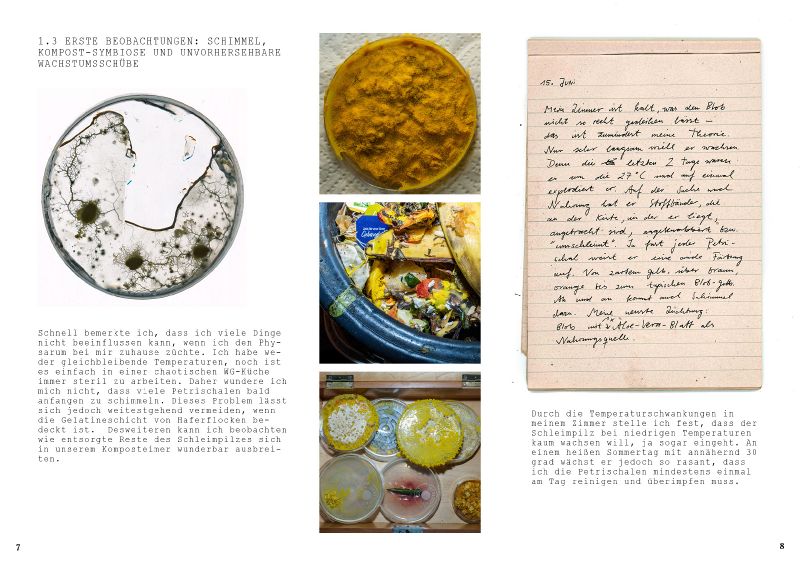 1.3 ERSTE BEOBACHTUNGEN: SCHIMMEL,
KOMPOST-SYMBIOSE UND UNVORHERSEHBARE
WACHSTUMSSCHÜBE
Schnell bemerkte ich, dass ich viele Dinge
nicht beeinflussen kann, wenn ich den Phy-
sarum bei mir zuhause züchte. Ich habe we-
der gleichbleibende Temperaturen, noch ist
es einfach in einer chaotischen WG-Küche
immer steril zu arbeiten. Daher wundere ich
mich nicht, dass viele Petrischalen bald
anfangen zu schimmeln. Dieses Problem lässt
sich jedoch weitestgehend vermeiden, wenn
die Gelatineschicht von Haferflocken be-
deckt ist. Desweiteren kann ich beobachten
wie entsorgte Reste des Schleimpilzes sich
in unserem Komposteimer wunderbar ausbrei-
ten.
7
15. Juni
Mein Zimmer ist kalt, was den Blob
nicht so recht gedeihen lässt –
das ist zumindest meine Theorie.
Nur sehr langsam will er wachsen.
Denn die letzten 2 Tage waren
es um die 27°C und auf einmal
explodiert er. Auf der Suche nach
Nahrung hat er Stoffbänder, die
an der Kiste, in der er liegt,
angebracht sind, bzw.
"umschleimt". In fast jeder Petri-
schal weist er eine andre Färbung
auf. Von zartem gelb, über braun,
orange bis zum typischen Blob-gelb.
Ab und an kommt auch Schimmel
dazu. Meine neuste Züchtung:
Blob mit Aloe-Vera-Blatt als
Nahrungsquelle.
Durch die Temperaturschwankungen in
meinem Zimmer stelle ich fest, dass der
Schleimpilz bei niedrigen Temperaturen
kaum wachsen will, ja sogar eingeht. An
einem heißen Sommertag mit annähernd 30
grad wächst er jedoch so rasant, dass
ich die Petrischalen mindestens einmal
am Tag reinigen und überimpfen muss.
8